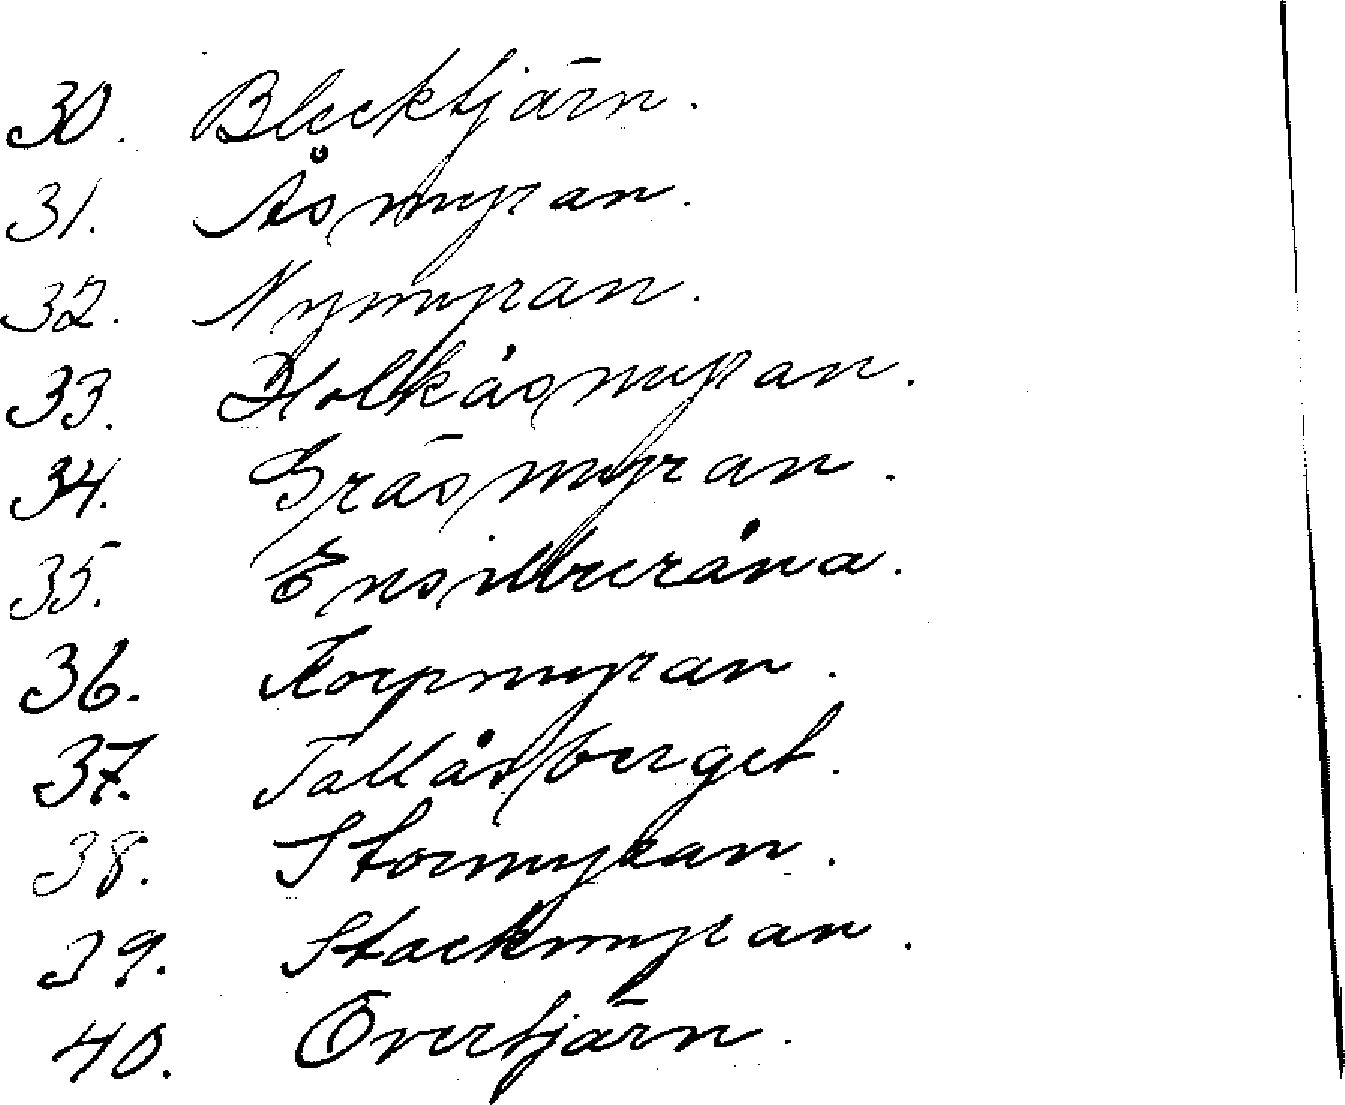 30. Blecktjärn.
31. Åsmyran.
32. Nymyran.
33. Holkåsmyran.
34. Gräsmyran.
35.
36. Korpmyran.
37. Tallåsberget.
38. Stormyran.
39. Stackmyran.
40. Övertjärn.